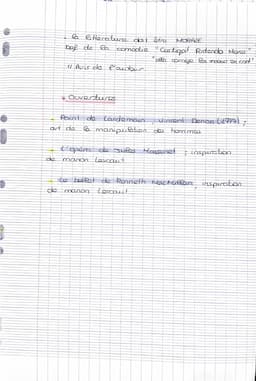 . La littérature doit être MORALE
but de la comédie "Castigat Ridendo Mores"
"elle corrige les mœurs en riant"
// Avis de l'auteur
• Ouverture
→ Point de lendemain, Vivant Denon (1777) ;
art de la manipulation des hommes
→ L'opéra de Jules Massenet ; inspiration
de manon Lescaut
→ Le ballet de Kenneth MacMillan, inspiration
de manon Lescaut